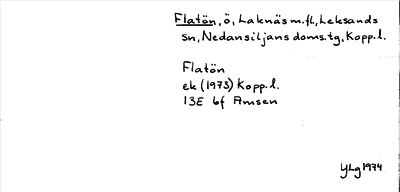 Flatön, ö, Laknäs m.fl, Leksands
sn, Nedansiljans doms.tg, Kopp.l.
Flatön
ek (1973) Kopp.l.
13E 6f Amsen
YLg 1974